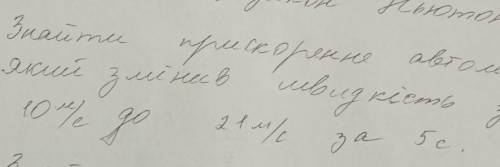 закон Ньютон
Знайти прискорення автом
який змінив швидкість з
10 м/с до 21 м/с за 5 с.